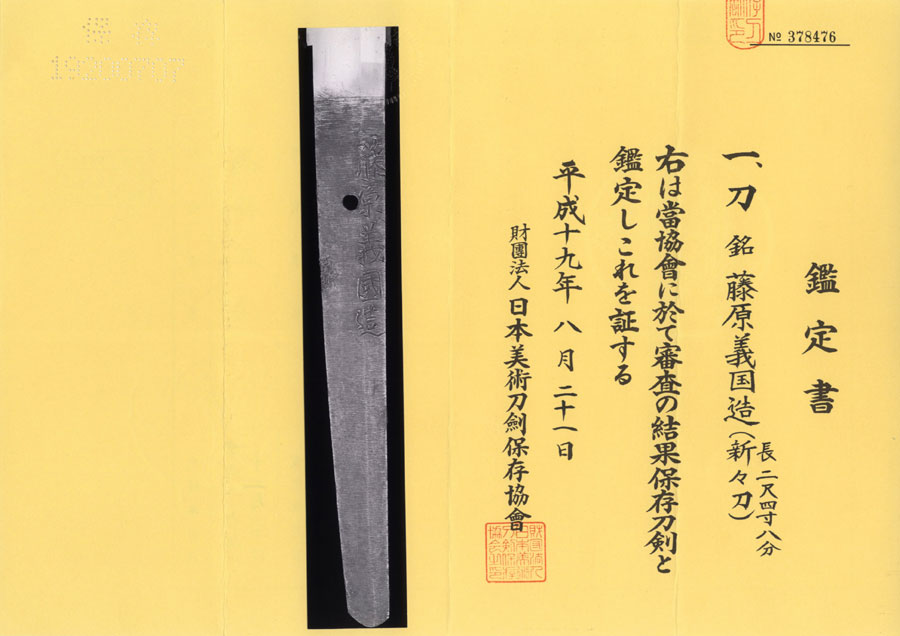 № 378476
鑑定書
一、刀 銘 藤原義国造(新々刀)
長二尺四寸八分
右は當協會に於て審査の結果保存刀剣と
鑑定しこれを証する
平成十九年八月二十一日
財團法人日本美術刀劍保存協會
藤原義國造
保存
19200707